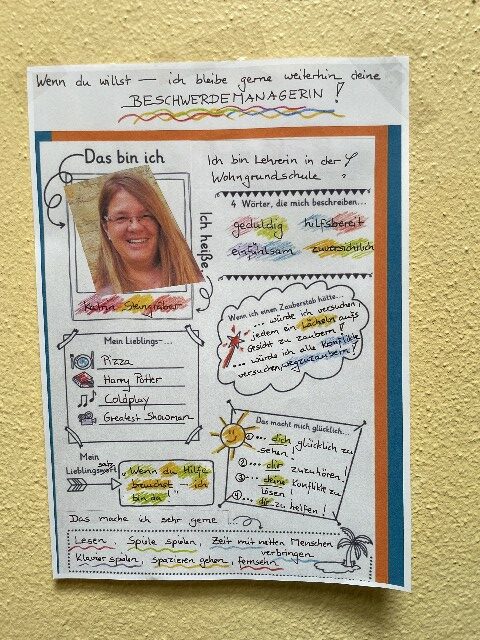 Wenn du willst — ich bleibe gerne weiterhin deine
BESCHWERDEMANAGERIN!
Das bin ich
Ich heiße
Katrin Steingräber
Ich bin Lehrerin in der
Wohngrundschule
4 Wörter, die mich beschreiben...
geduldig hilfsbereit
einfühlsam zuversichtlich
Wenn ich einen Zauberstab hätte...
... würde ich versuchen,
jedem ein Lächeln aufs
Gesicht zu zaubern!
... würde ich alle Konflikte
versuchen, wegzuzaubern!
Mein Lieblings-...
Pizza
Harry Potter
Coldplay
Greatest Showman
Mein
Lieblingswort
satz
"Wenn du Hilfe
brauchst - ich
bin da!"
Das macht mich glücklich...
① ... dich glücklich zu
sehen!
② ... dir zuzuhören!
③ ... deine Konflikte zu
lösen!
④ ... dir zu helfen!
Das mache ich sehr gerne
Lesen, Spiele spielen, Zeit mit netten Menschen
verbringen
Klavier spielen, spazieren gehen, fernsehen